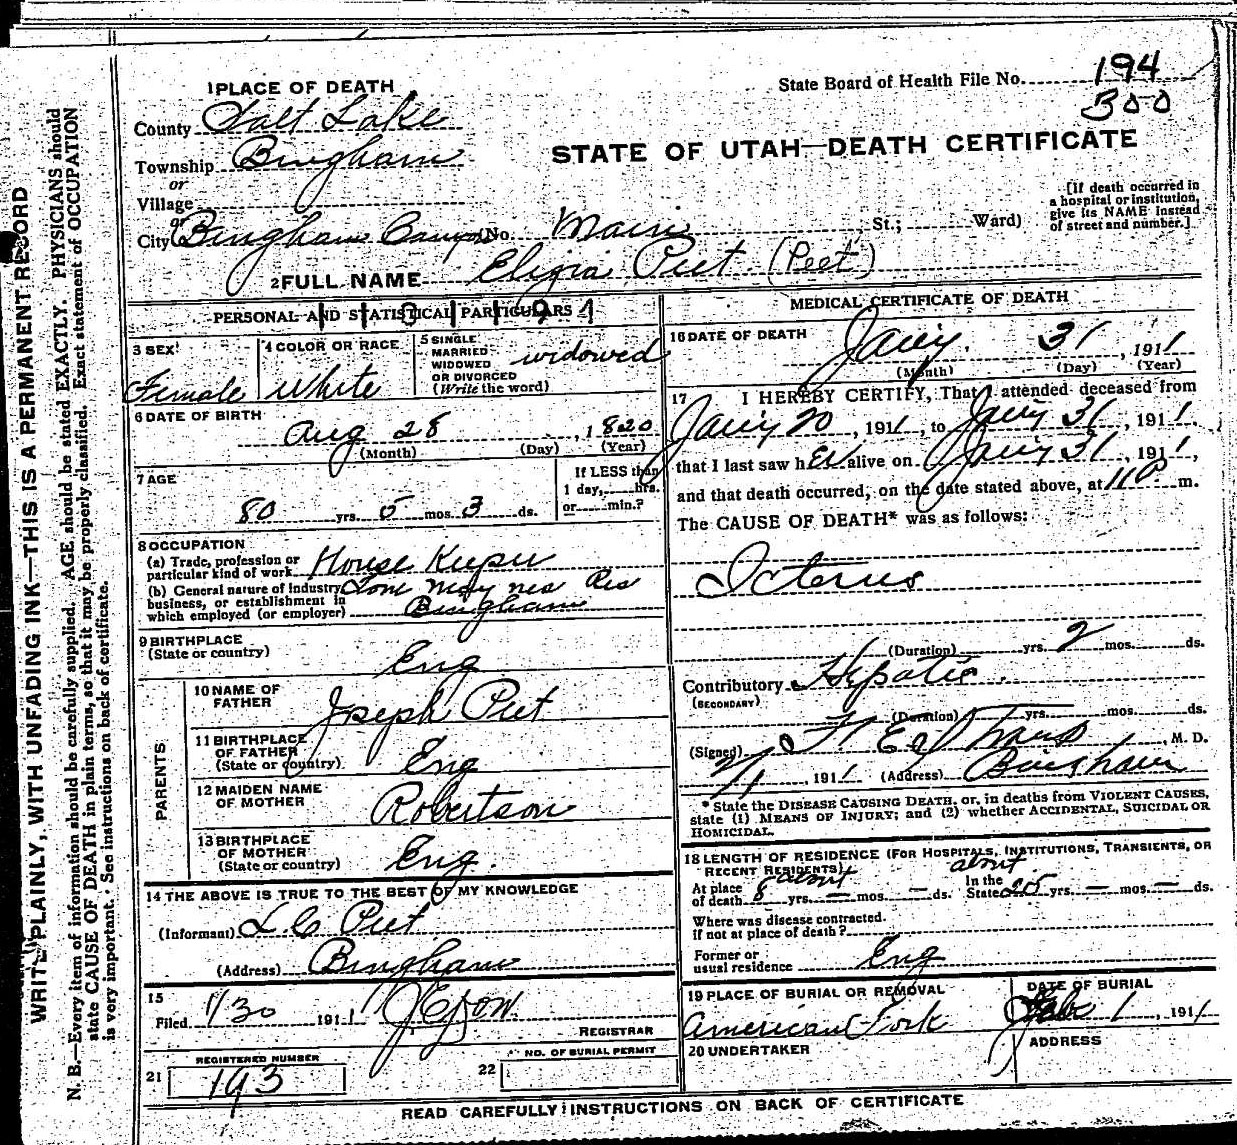 WRITE PLAINLY, WITH UNFADING INK—THIS IS A PERMANENT RECORD
N. B.—Every item of information should be carefully supplied. AGE should be stated EXACTLY. PHYSICIANS should
state CAUSE OF DEATH in plain terms, so that it may be properly classified. Exact statement of OCCUPATION
is very important. See instructions on back of certificate.
1 PLACE OF DEATH
State Board of Health File No. 194
300
County Salt Lake
STATE OF UTAH—DEATH CERTIFICATE
Township Bingham
or
Village
or
City Bingham Canyon (No. Main St.; Ward)
[If death occurred in
a hospital or institution,
give its NAME instead
of street and number.]
2 FULL NAME Eligia Peet (Peet)
PERSONAL AND STATISTICAL PARTICULARS
3 SEX
Female
4 COLOR OR RACE
White
5 SINGLE
MARRIED
WIDOWED
OR DIVORCED
(Write the word)
widowed
6 DATE OF BIRTH
Aug 28, 1820
(Month) (Day) (Year)
7 AGE
80 yrs. 5 mos. 3 ds.
If LESS than
1 day, hrs.
or min.?
8 OCCUPATION
(a) Trade, profession or
particular kind of work House Keeper
(b) General nature of industry
business, or establishment in
which employed (or employer) Bingham
9 BIRTHPLACE
(State or country)
Eng
PARENTS
10 NAME OF
FATHER
Joseph Peet
11 BIRTHPLACE
OF FATHER
(State or country) Eng
12 MAIDEN NAME
OF MOTHER
Robertson
13 BIRTHPLACE
OF MOTHER
(State or country) Eng.
14 THE ABOVE IS TRUE TO THE BEST OF MY KNOWLEDGE
(Informant) L C Peet
(Address) Bingham
15
Filed 1/30 1911
REGISTRAR
REGISTERED NUMBER
21 193
NO. OF BURIAL PERMIT
22
MEDICAL CERTIFICATE OF DEATH
16 DATE OF DEATH
Jany. 31, 1911
(Month) (Day) (Year)
17 I HEREBY CERTIFY, That I attended deceased from
Jany 20, 1911, to Jany 31, 1911,
that I last saw her alive on Jany 31, 1911,
and that death occurred, on the date stated above, at 11 P m.
The CAUSE OF DEATH* was as follows:
Icterus
(Duration) yrs. 2 mos. ds.
Contributory Hepatic.
(SECONDARY)
(Duration) yrs. mos. ds.
(Signed) M. D.
2/1, 1911 (Address) Bingham
*State the DISEASE CAUSING DEATH, or, in deaths from VIOLENT CAUSES,
state (1) MEANS OF INJURY; and (2) whether ACCIDENTAL, SUICIDAL OR
HOMICIDAL.
18 LENGTH OF RESIDENCE (FOR HOSPITALS, INSTITUTIONS, TRANSIENTS, OR
RECENT RESIDENTS)
At place
of death 8 about yrs. — mos. — ds.
In the
State about 25 yrs. — mos. — ds.
Where was disease contracted.
if not at place of death?
Former or
usual residence Eng
19 PLACE OF BURIAL OR REMOVAL
American Fork
DATE OF BURIAL
Feb 1, 1911
20 UNDERTAKER
ADDRESS
READ CAREFULLY INSTRUCTIONS ON BACK OF CERTIFICATE